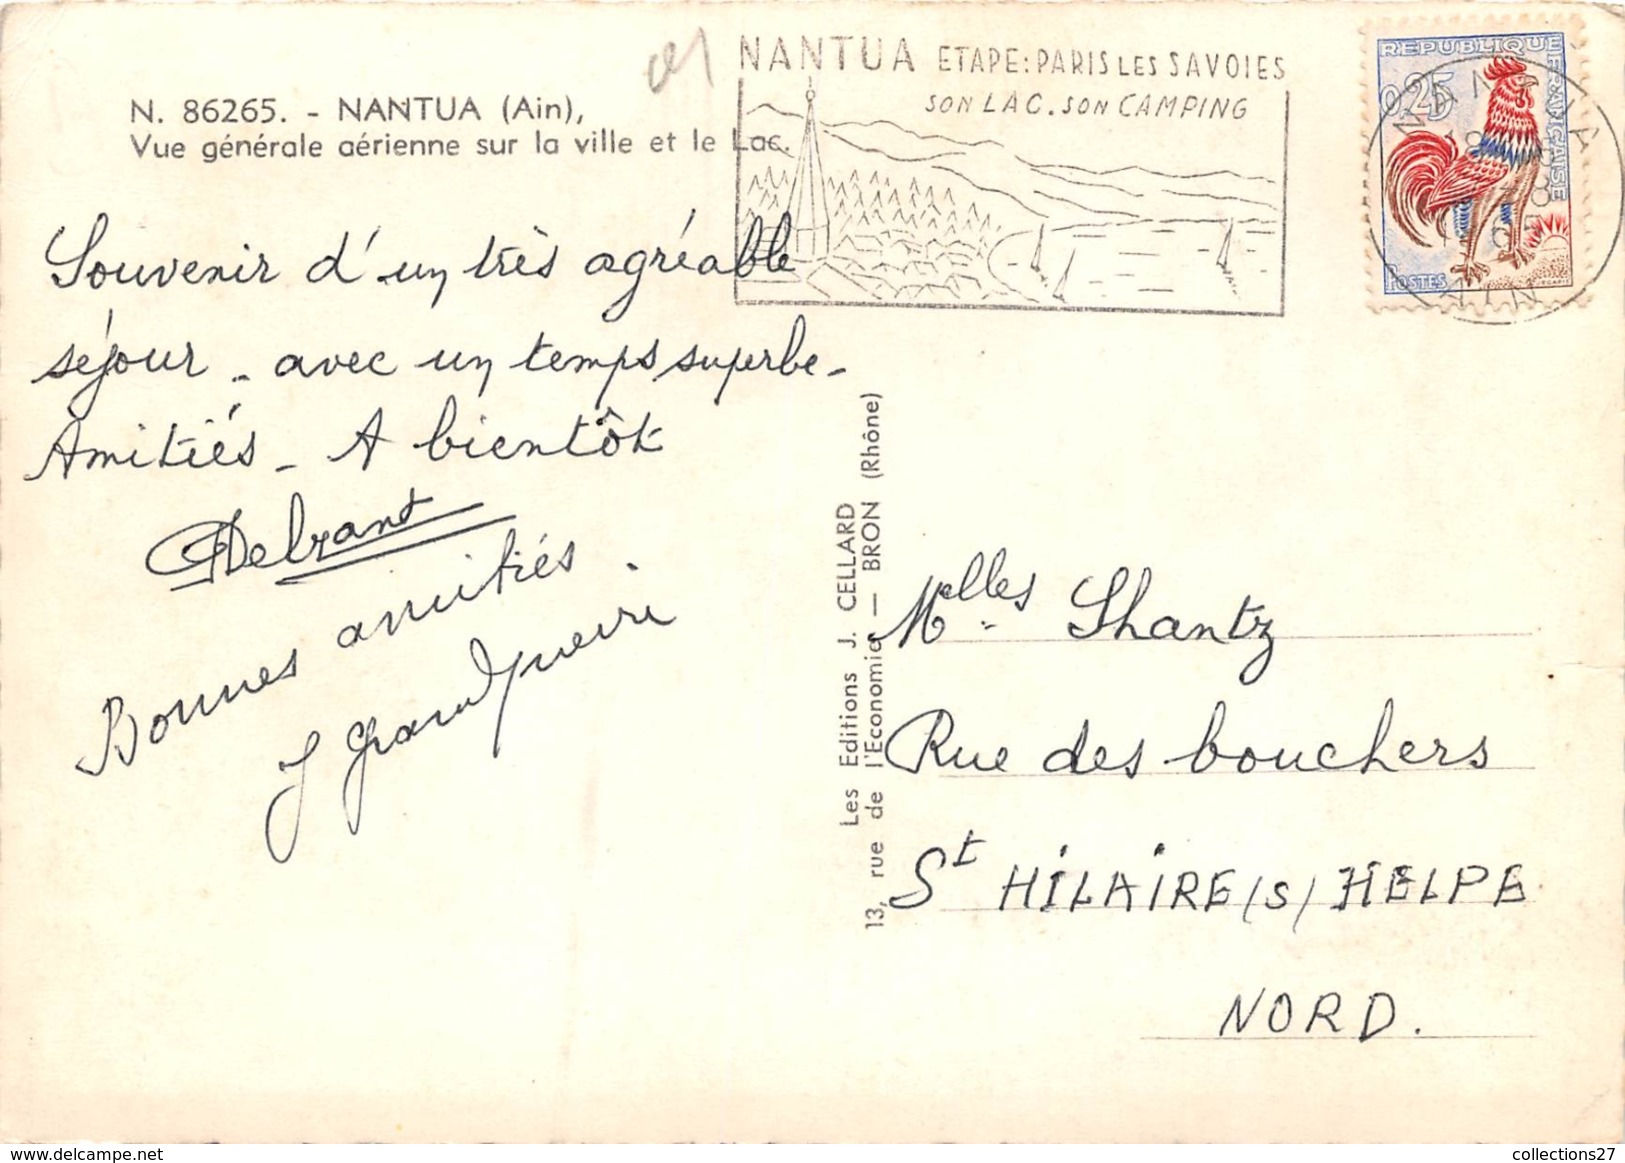 N. 86265. - NANTUA (Ain),
Vue générale aérienne sur la ville et le Lac.
NANTUA ETAPE: PARIS LES SAVOIES
SON LAC. SON CAMPING
REPUBLIQUE FRANÇAISE
0,25
POSTES
NANTUA
AIN
Souvenir d'un très agréable
séjour - avec un temps superbe -
Amitiés - A bientôt
Bonnes amitiés.
Les Editions J. CELLARD
13, rue de l'Economie — BRON (Rhône)
Melles Shantz
Rue des bouchers
St HILAIRE /S/ HELPE
NORD.
collections27